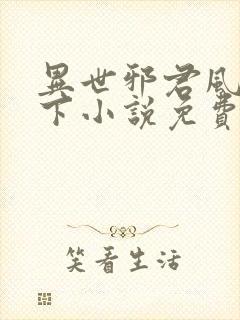 異世邪君風
下小說免費
笑看生活